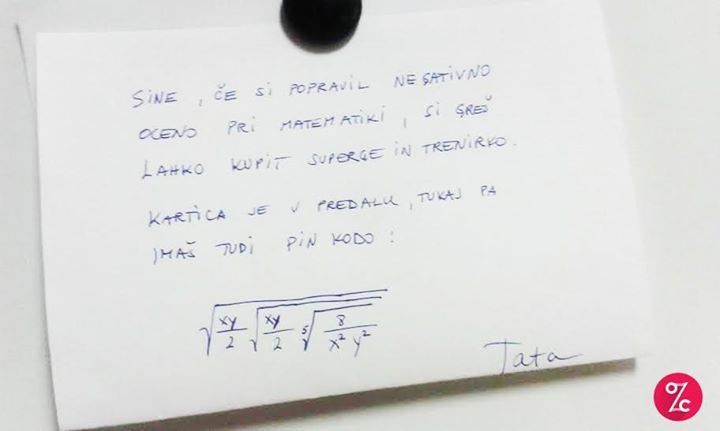 SINE, ČE SI POPRAVIL NEGATIVNO
OCENO PRI MATEMATIKI, SI GREŠ
LAHKO KUPIT SUPERGE IN TRENIRKO.
KARTICA JE V PREDALU, TUKAJ PA
IMAŠ TUDI PIN KODO:
√(xy/2 √(xy/2 ⁵√(8/x² y²)))
Tata
%c